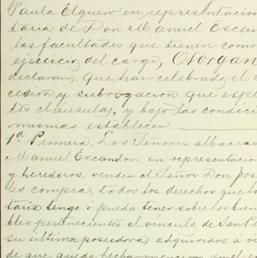 Paula Elguero en representacion
taria de Don Manuel Escan
las facultades que tienen como
ejercicio del cargo, Otorgan
declaran, que han celebrado el
cesion y subrogacion que expl
tes cláusulas, y bajo las condic
mismas establecen.
1ª Primera. Los Señores albaceas
Manuel Escandon, en representacion
y herederos, venden al Señor Don Jos
les compra, todos los derechos que la
taria tenga ó pueda tener sobre los bien
bles pertenecientes al vínculo de San Pe
su última poseedora, adquiridos a v
de que queda hecha mencion en el